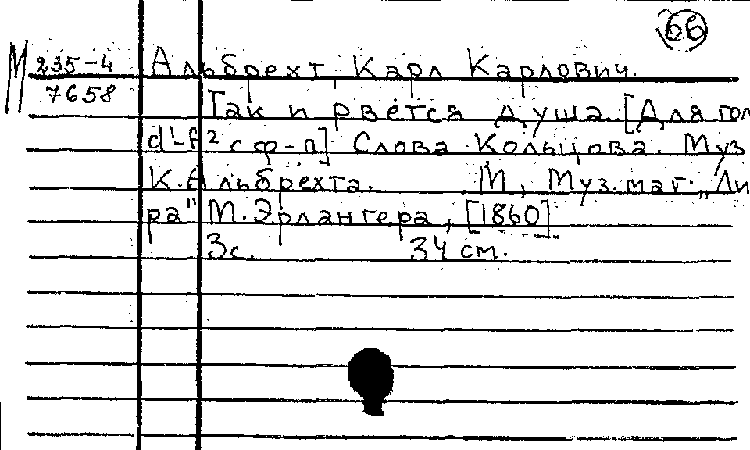 66
М 235-4 Альбрехт, Карл Карлович.
7658 Так и рвётся душа. [Для гол
d'-f² с ф-п] Слова Кольцова. Муз
К. Альбрехта. М., Муз. маг. „Ли
ра" М. Эрлангера, [1860]
3с. 34 см.